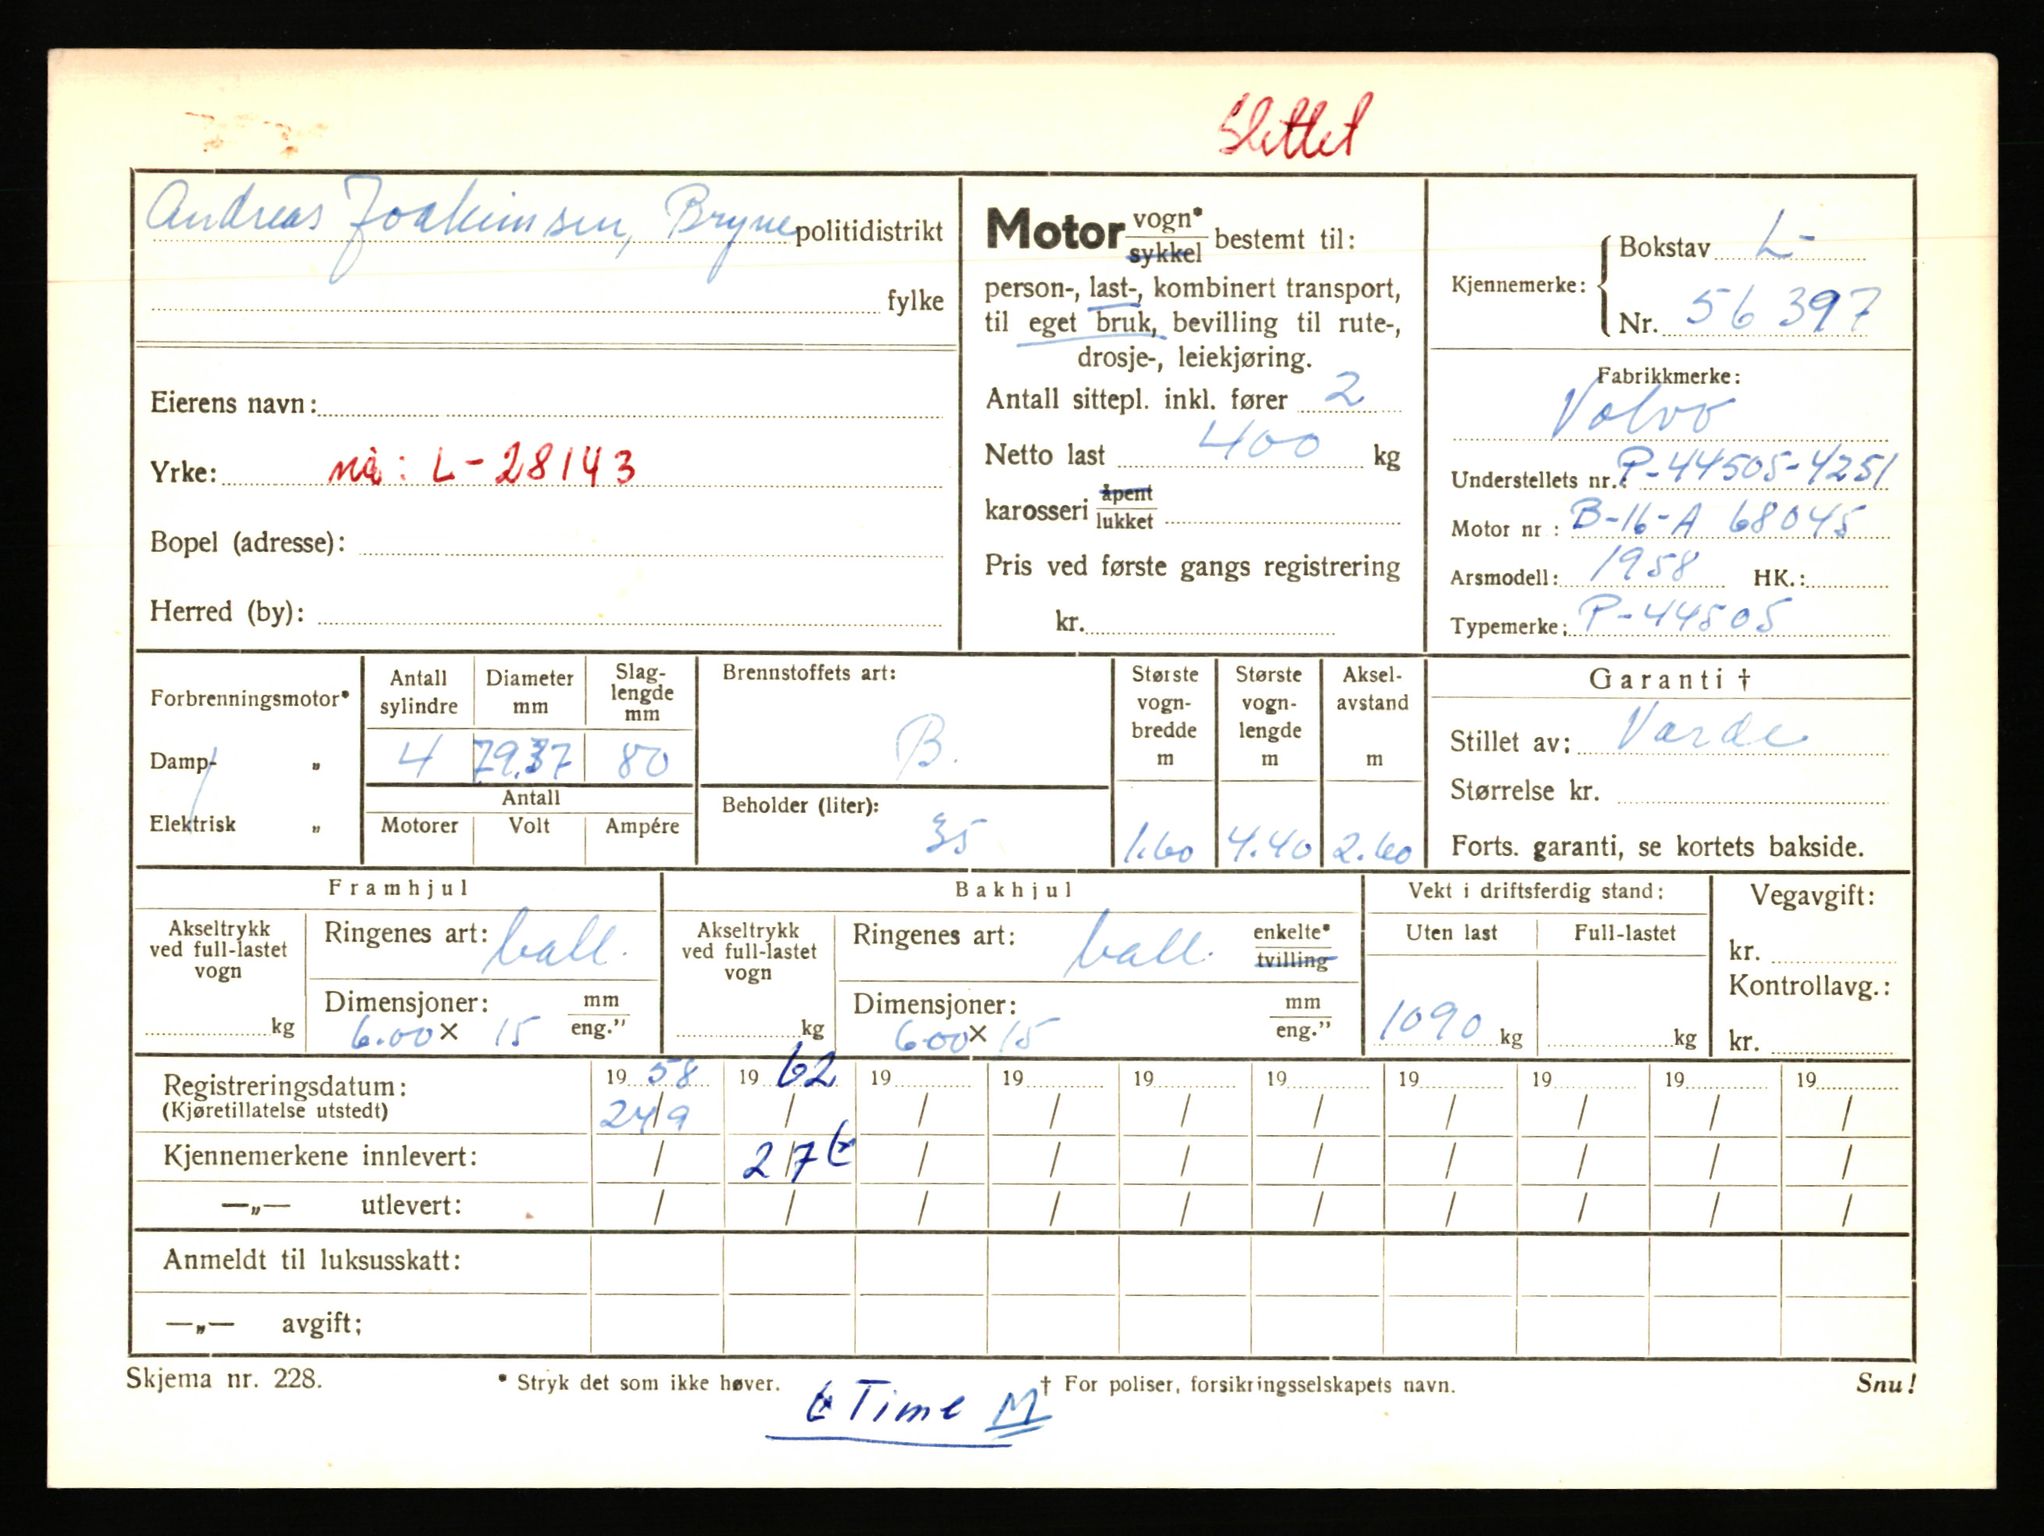 Slettet
Andreas Joakimsen, Bryne politidistrikt
fylke
Eierens navn:
Yrke: nå: L-28143
Bopel (adresse):
Herred (by):
Motor vogn* sykkel bestemt til:
person-, last-, kombinert transport,
til eget bruk, bevilling til rute-,
drosje-, leiekjøring.
Antall sittepl. inkl. fører 2
Netto last 400 kg
karosseri åpent lukket
Pris ved første gangs registrering
kr.
Kjennemerke: Bokstav L-
Nr. 56397
Fabrikkmerke:
Volvo
Understellets nr.: P-44505-4251
Motor nr : B-16-A 68045
Arsmodell: 1958 HK.:
Typemerke: P-44505
Forbrenningsmotor*
Damp- „
Elektrisk „
Antall sylindre
Diameter mm
Slag-lengde mm
4 79.37 80
Antall
Motorer Volt Ampére
Brennstoffets art:
B.
Beholder (liter):
35
Største vogn-bredde m
1.60
Største vogn-lengde m
4.40
Aksel-avstand m
2.60
Garanti †
Stillet av: Varde
Størrelse kr.
Forts. garanti, se kortets bakside.
Framhjul
Akseltrykk ved full-lastet vogn
kg
Ringenes art: ball.
Dimensjoner: mm eng.”
6.00 x 15
Bakhjul
Akseltrykk ved full-lastet vogn
kg
Ringenes art: ball. enkelte* tvilling
Dimensjoner: mm eng.”
6.00 x 15
Vekt i driftsferdig stand:
Uten last Full-lastet
1090 kg kg
Vegavgift:
kr.
Kontrollavg.:
kr.
Registreringsdatum: 19 58 19 62 19 19 19 19 19 19 19 19
(Kjøretillatelse utstedt) 24/9 / / / / / / / / /
Kjennemerkene innlevert: / 2/7 / / / / / / / /
—„— utlevert: / / / / / / / / / /
Anmeldt til luksusskatt:
—„— avgift;
Skjema nr. 228. * Stryk det som ikke høver. † For poliser, forsikringsselskapets navn. Snu!
Time M